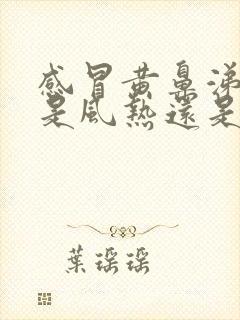 感冒黄鼻涕
是風熱還是
葉瑶瑶